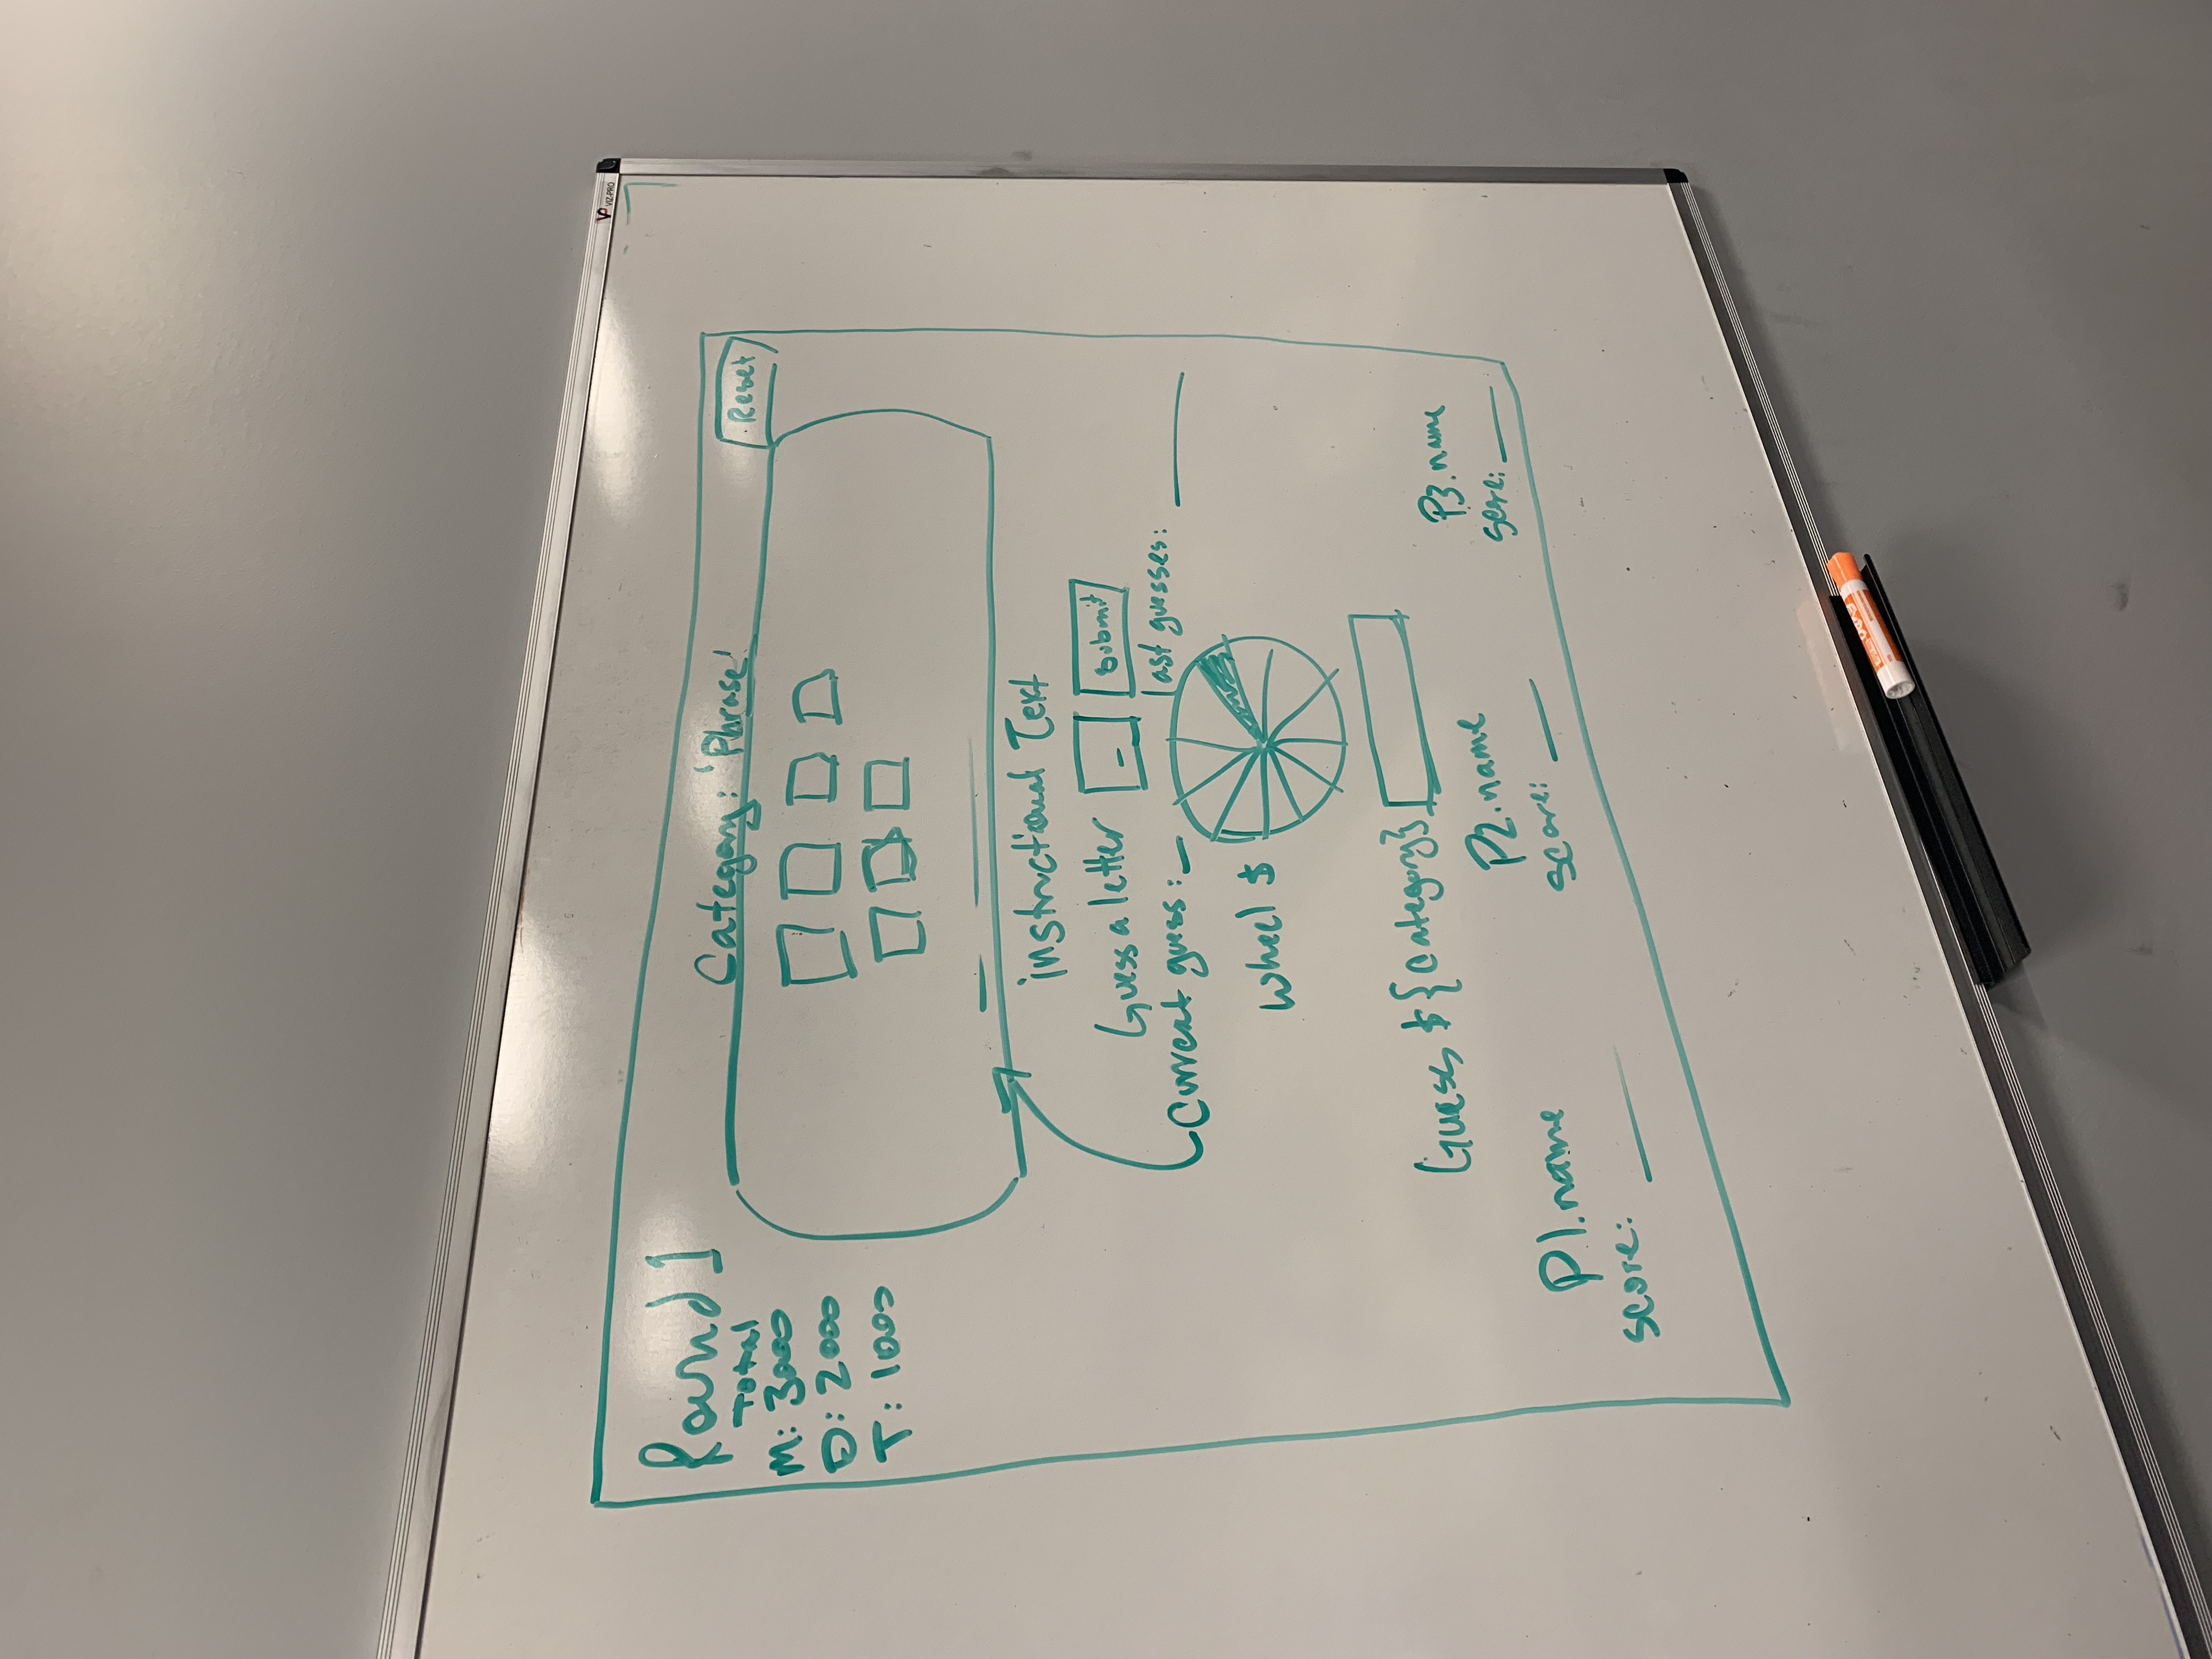 VP VIZ-PRO
Round 1
Total
M: 3000
D: 2000
T: 1000
Category: 'Phrase'
Reset
instructional Text
Guess a letter _ Submit
Current guess: _
Last guesses: ____
Wheel $
Guess ${category}
P1.name
score: ____
P2.name
score: ____
P3.name
score: ____
EXPO